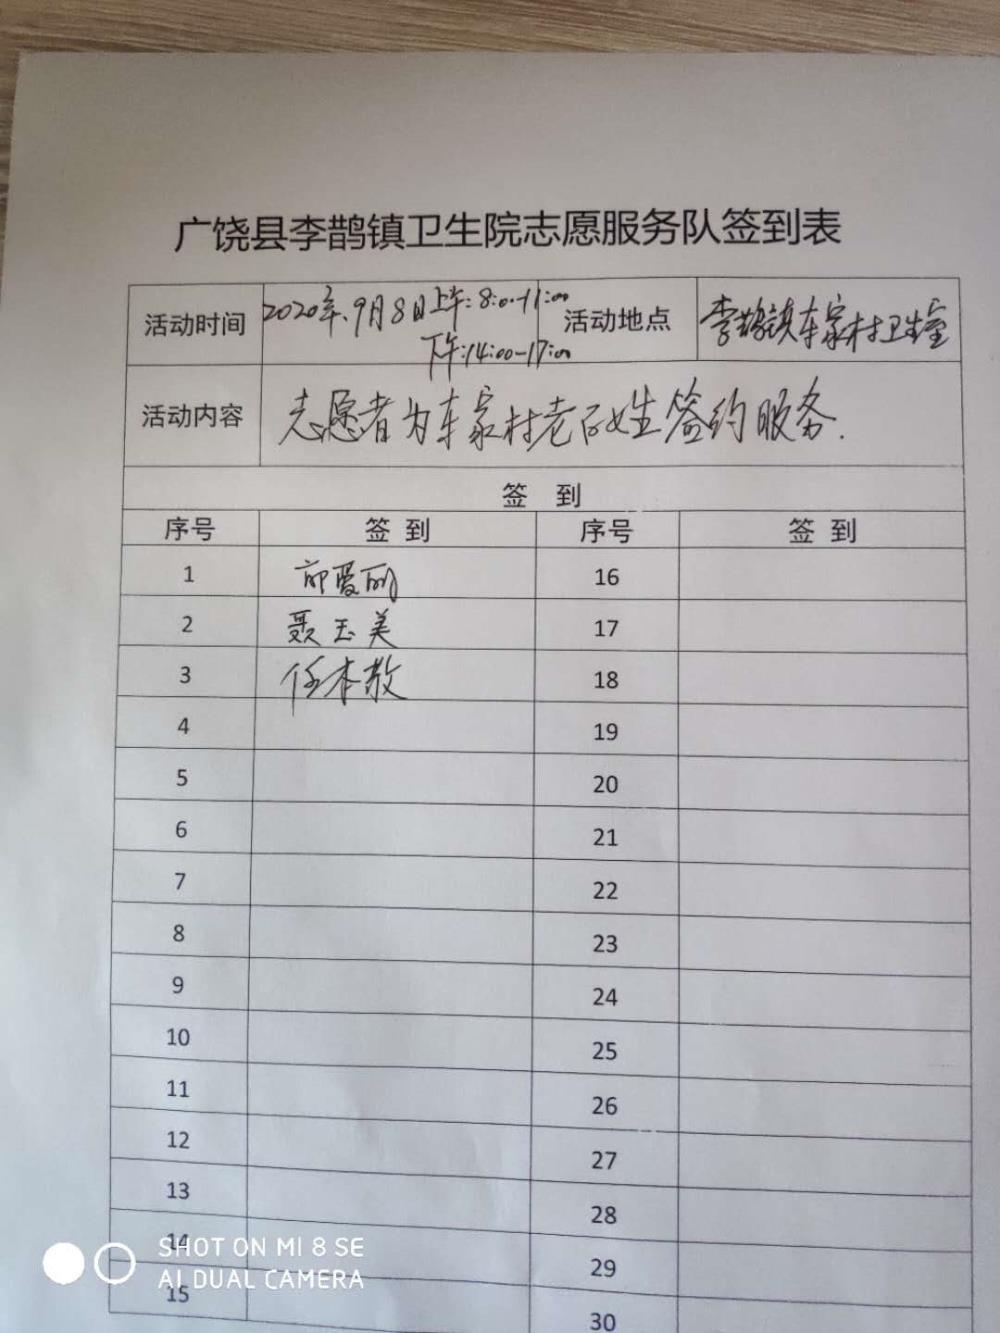 广饶县李鹊镇卫生院志愿服务队签到表
活动时间 2020年.9月8日上午:8:00-11:00 活动地点 李鹊镇车家村卫生室
下午:14:00-17:00
活动内容 志愿者为车家村老百姓签约服务.
签 到
序号 签到 序号 签到
1 16
2 聂玉美 17
3 任本敬 18
4 19
5 20
6 21
7 22
8 23
9 24
10 25
11 26
12 27
13 28
14 29
15 30
SHOT ON MI 8 SE
AI DUAL CAMERA